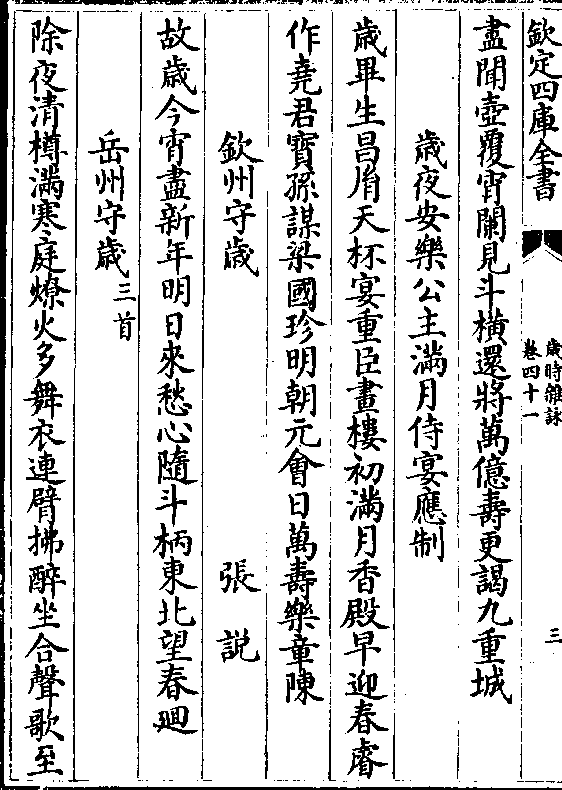 欽定四庫全書
歲時雜詠
卷四十一
三
盡聞壺覆宵闌見斗橫還將萬億壽更謁九重城
歲夜安樂公主滿月侍宴應制
歲畢生昌胤天杯宴重臣畫樓初滿月香殿早迎春睿
作堯君寶孫謀梁國珍明朝元會日萬壽樂章陳
欽州守歲 張說
故歲今宵盡新年明日來愁心隨斗柄東北望春廻
岳州守歲三首
除夜清樽滿寒庭燎火多舞衣連臂拂醉坐合聲歌至